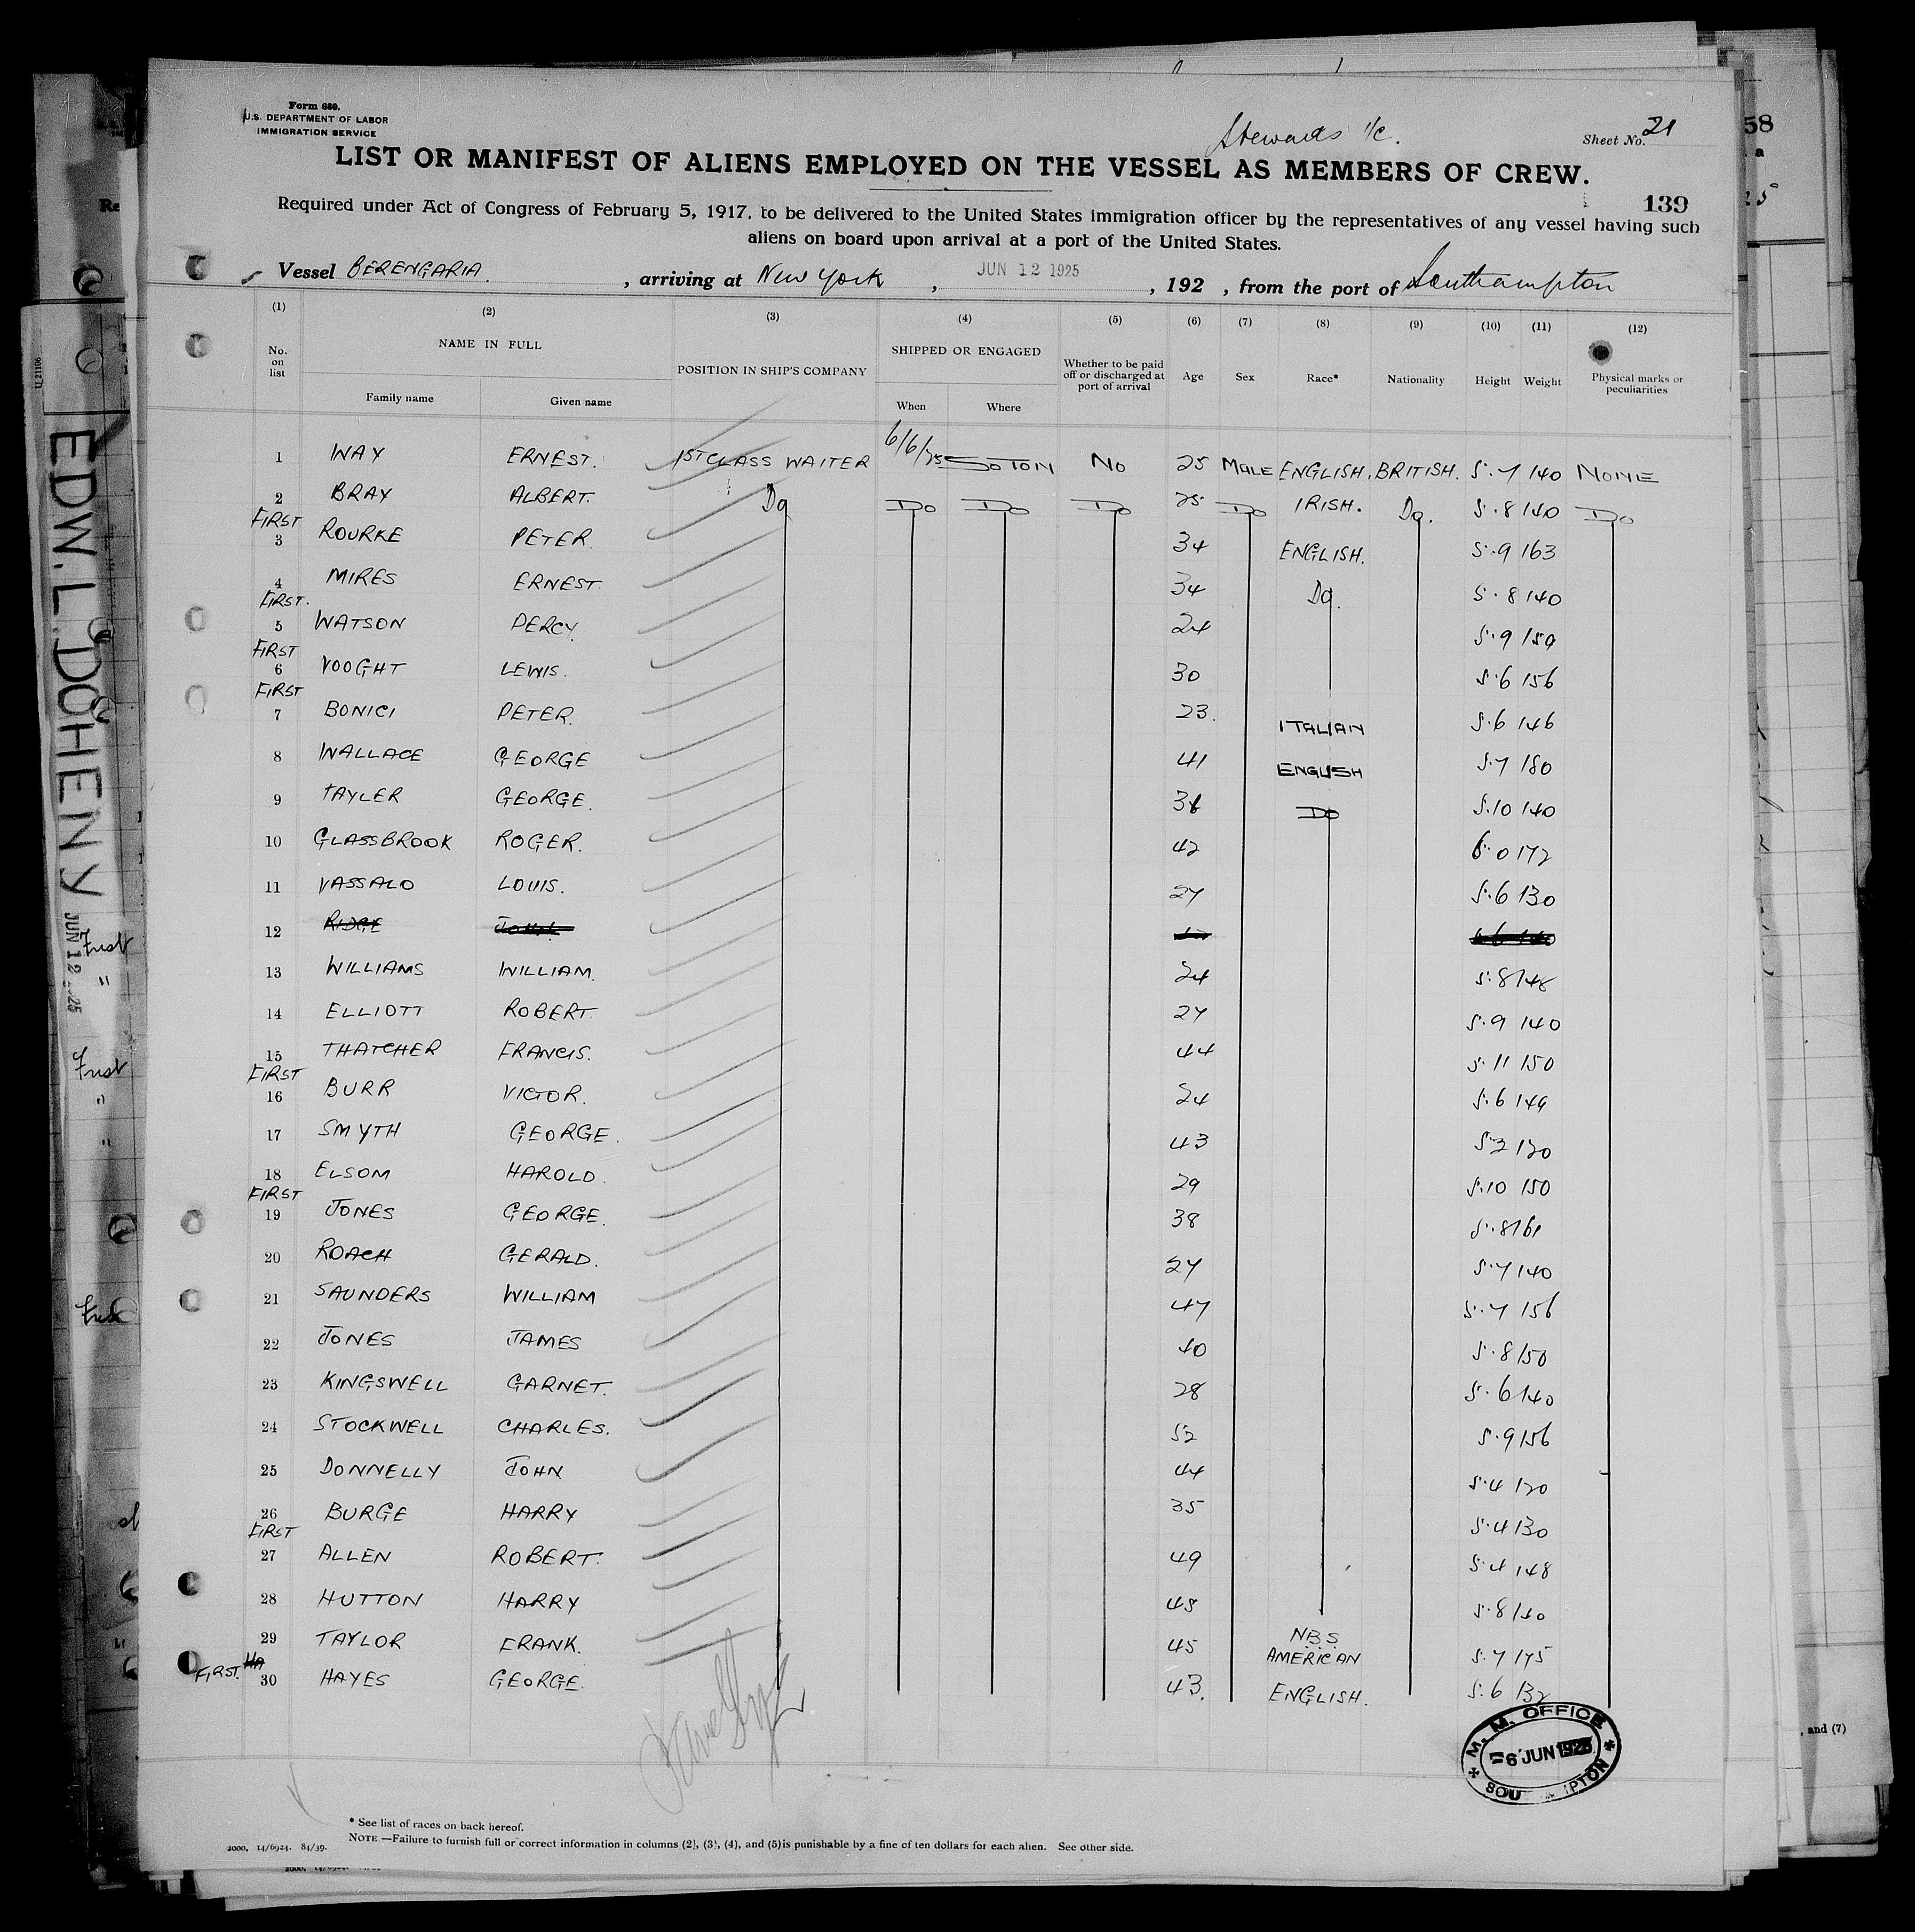 Form 680.
U.S. DEPARTMENT OF LABOR
IMMIGRATION SERVICE
Stewards 1/c.
Sheet No. 21
LIST OR MANIFEST OF ALIENS EMPLOYED ON THE VESSEL AS MEMBERS OF CREW.
139
Required under Act of Congress of February 5, 1917, to be delivered to the United States immigration officer by the representatives of any vessel having such
aliens on board upon arrival at a port of the United States.
Vessel BERENGARIA. , arriving at New York , JUN 12 1925 , 192 , from the port of Southampton
(1) (2) (3) (4) (5) (6) (7) (8) (9) (10) (11) (12)
No. on list NAME IN FULL POSITION IN SHIP'S COMPANY SHIPPED OR ENGAGED Whether to be paid off or discharged at port of arrival Age Sex Race* Nationality Height Weight Physical marks or peculiarities
Family name Given name When Where
1 WAY ERNEST. 1ST CLASS WAITER 6/6/25 SOTON NO 25 MALE ENGLISH. BRITISH. 5.7 140 NONE
2 BRAY ALBERT. Do Do Do Do 25 Do IRISH. Do. 5.8 140 Do
FIRST
3 ROURKE PETER. 34 ENGLISH. 5.9 163
4 MIRES ERNEST. 34 Do. 5.8 140
FIRST.
5 WATSON PERCY. 24 5.9 150
FIRST
6 VOOGHT LEWIS. 30 5.6 156
FIRST
7 BONICI PETER. 23. ITALIAN 5.6 146
8 WALLACE GEORGE 41 ENGLISH 5.7 180
9 TAYLER GEORGE. 36 Do 5.10 140
10 GLASSBROOK ROGER. 42 6.0 172
11 VASSALO LOUIS. 27 5.6 130
12 RIDGE JOHN.
13 WILLIAMS WILLIAM. 24 5.8 148
14 ELLIOTT ROBERT. 27 5.9 140
15 THATCHER FRANCIS. 44 5.11 150
FIRST
16 BURR VICTOR. 24 5.6 149
17 SMYTH GEORGE. 43 5.2 120
18 ELSOM HAROLD. 29 5.10 150
FIRST
19 JONES GEORGE. 38 5.8 161
20 ROACH GERALD. 27 5.7 140
21 SAUNDERS WILLIAM 47 5.7 156
22 JONES JAMES 40 5.8 150
23 KINGSWELL GARNET. 28 5.6 140
24 STOCKWELL CHARLES. 52 5.9 156
25 DONNELLY JOHN 44 5.4 120
26 BURGE HARRY 35 5.4 130
FIRST
27 ALLEN ROBERT. 49 5.4 148
28 HUTTON HARRY 48 5.8 140
29 TAYLOR FRANK. 45 N.B.S. AMERICAN 5.7 175
FIRST. HA
30 HAYES GEORGE. 43. ENGLISH. 5.6 132
M. M. OFFICE
6 JUN 1925
* See list of races on back hereof.
NOTE —Failure to furnish full or correct information in columns (2), (3), (4), and (5) is punishable by a fine of ten dollars for each alien. See other side.
2000. 14/6924. 84/39.
EDW. L. DOHENY
JUN 12
U 21106
58
, and (7)